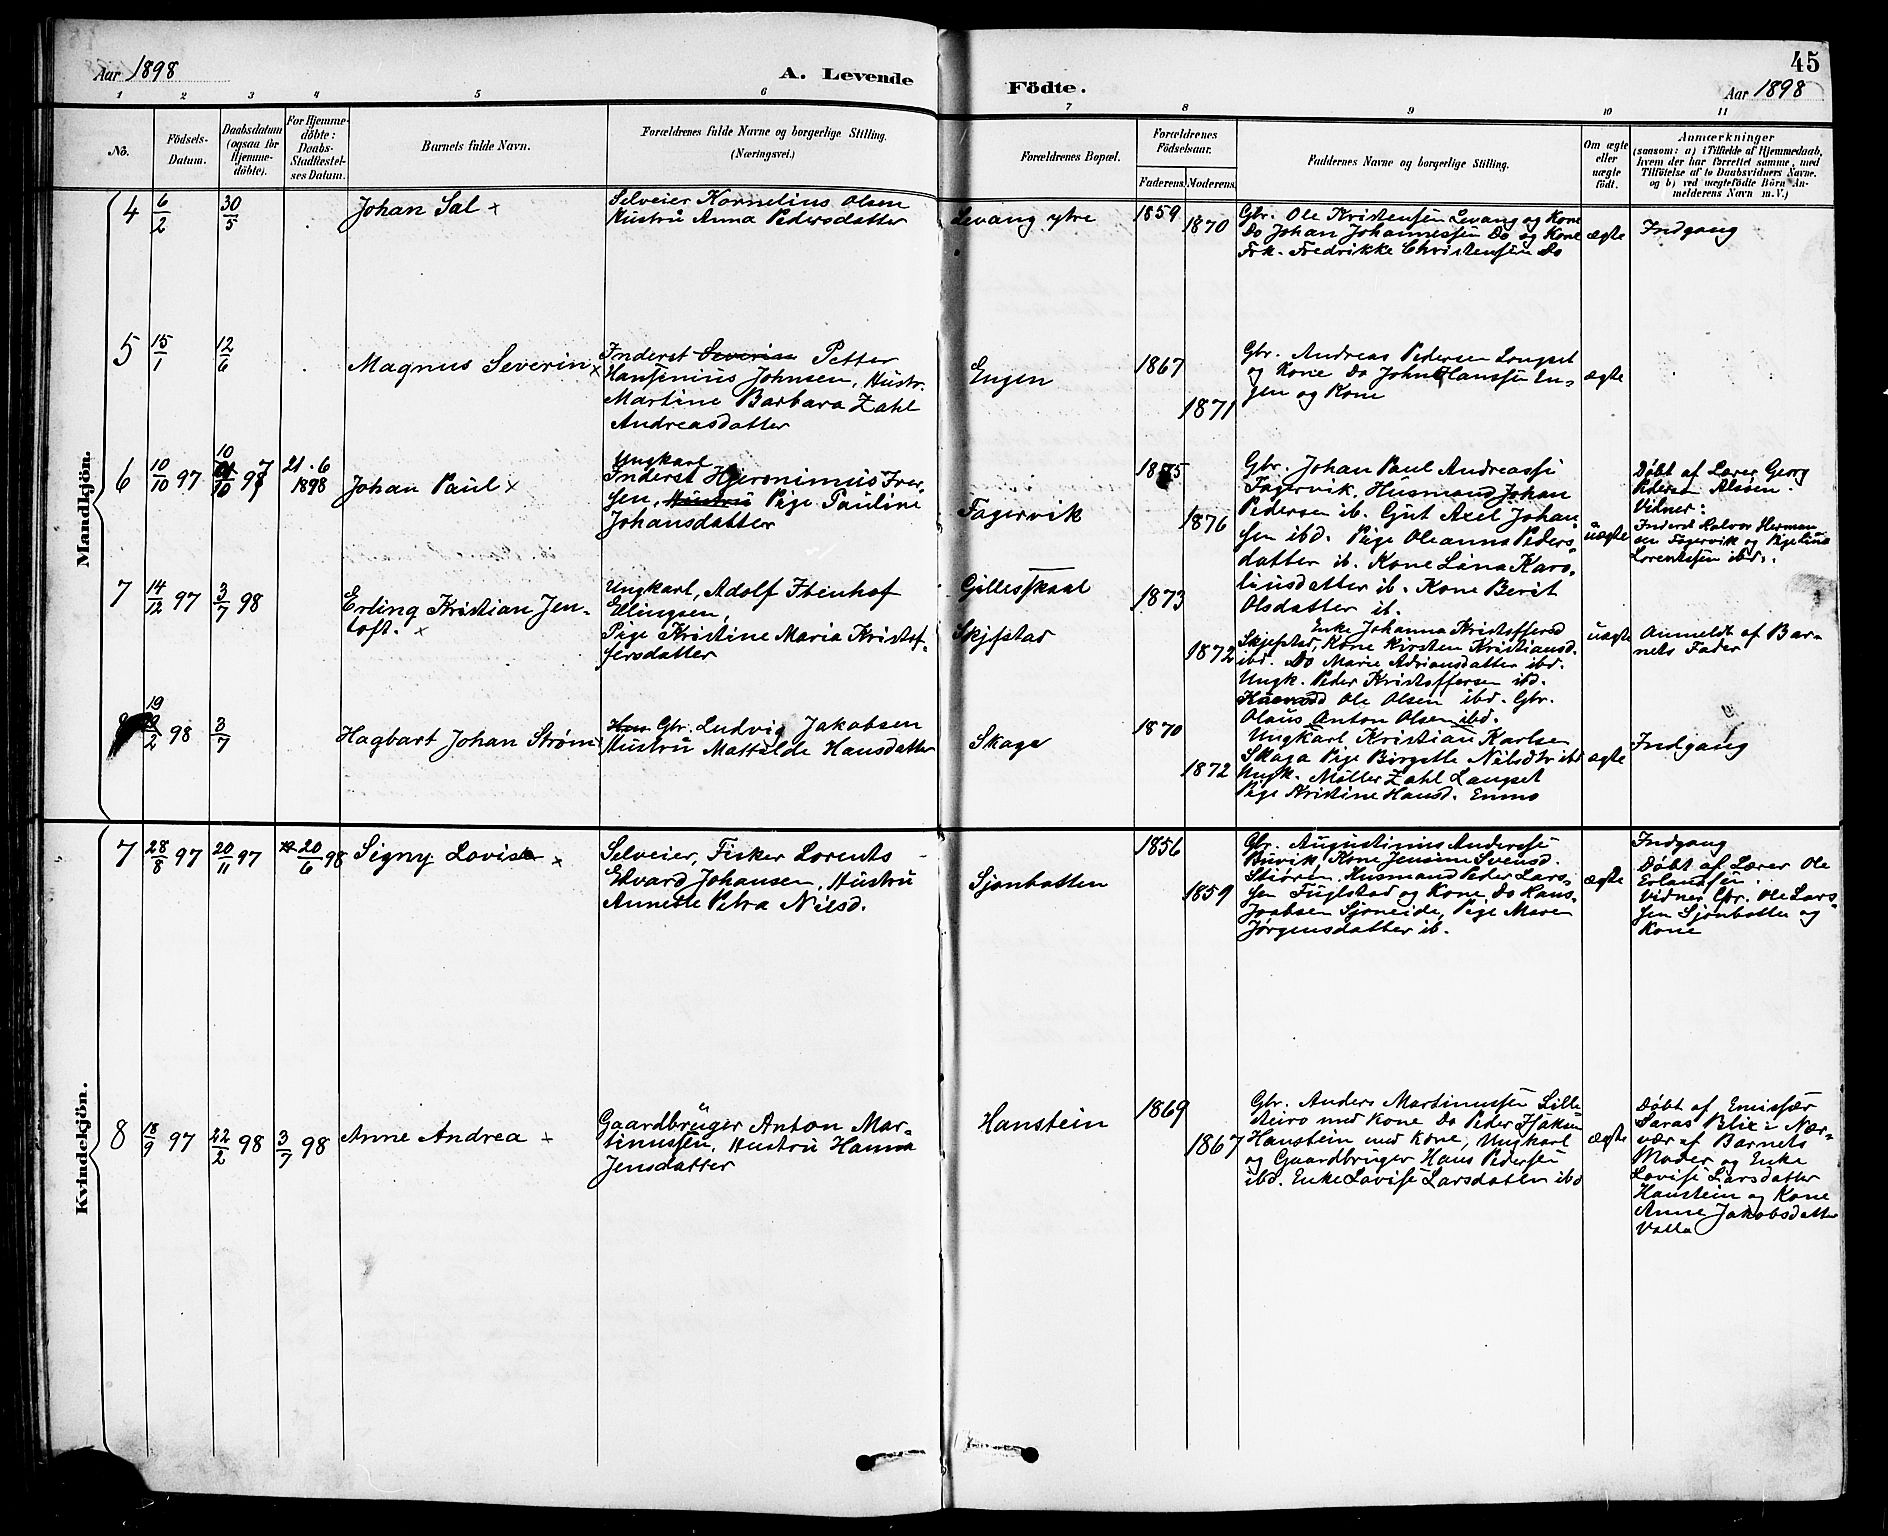 45
Aar 1898
A. Levende
Födte.
Aar 1898
1 2 3 4 5 6 7 8 9 10 11
No.
Födsels-
Datum.
Daabsdatum
(ogsaa for
Hjemme-
döbte).
For Hjemme-
döbte:
Daabs-
Stadfæstel-
ses Datum.
Barnets fulde Navn.
Forældrenes fulde Navne og borgerlige Stilling.
(Næringsvei.)
Forældrenes Bopæl.
Forældrenes
Födselsaar.
Faderens. Moderens.
Faddernes Navne og borgerlige Stilling.
Om ægte
eller
uægte
födt.
Anmærkninger
(saasom: a) i Tilfælde af Hjemmedaab,
hvem der har forrettet samme, med
Tilföielse af to Daabsvidners Navne,
og b) ved uægtefödte Börn An-
melderens Navn m. V.)
Mandkjön.
4
6/2
30/5
Johan Sal x
Selveier Kornelius Olsen
Hustru Anna Pedersdatter
Levang ytre
1859
1870
Gbr. Ole Kristensen Levang og Kone
Do Johan Johannessen Do og Kone
Frk. Fredrikke Christensen Do
ægte
Indgang
5
15/1
12/6
Magnus Severin x
Inderst Severin Petter
Hansenius Johnsen, Hustr.
Martine Barbara Zahl
Andreasdatter
Engen
1867
1871
Gbr. Andreas Pedersen Langset
og Kone Do John Hanssen En-
gen og Kone
ægte
6
10/10 97
21.6
1898
Johan Paul x
Ungkarl
Inderst Hjeronimus Iver-
sen, Hustru Pige Pauline
Johansdatter
Fagervik
1875
1876
Gbr. Johan Paul Andreasse
Fagervik, Husmand Johan
Pedersen ib. Gut Axel Johan-
sen ibd. Pige Oleanna Peders-
datter ib. Kone Lina Karo-
liusdatter ib. Kone Berit
Olsdatter ib.
uægte
Døbt af Lærer Georg
Pedersen Alsøen.
Vidner:
Inderst Halvor Herman-
sen Fagervik og Pige Lina
Lorentssen ibd.
7
14/12 97
3/7 98
Erling Kristian Jen-
toft. x
Ungkarl, Adolf Ibenhof
Ellingsen,
Pige Kristine Maria Kristof-
fersdatter
Gillesskaal
Skjefstad
1873
1872
Enke Johanna Kristoffersd
Skjefstad, Kone Kirsten Kristiansd.
ibd. Do Marie Adriansdatter ibd.
Ungk. Peder Kristoffersen ibd.
Ole Olsen ibd. Gbr.
Olaus Anton Olsen ibd.
uægte
Anmeldt af Bar-
nets Fader
19/2 98
3/7
Hagbart Johan Strøm
Gbr. Ludvig Jakobsen
Hustru Mathilde Hansdatter
Skaga
1870
1872
Ungkarl Kristian Karlsen
Skaga Pige Birgitte Nilsdtr ibd
Ungk. Møller Zahl Langset
Pige Kristine Hansd. Enmo
ægte
Indgang
Kvindekjön.
7
28/8 97
20/11 97
20/6 98
Signy Lovise x
Selveier, Fisker Lorents
Edvard Johansen, Hustru
Annette Petra Nilsd.
Sjonbotten
1856
1859
Gbr. Augustinus Anderssen
Buvik, Kone Jensine Svensd.
Husmand Peder Lars-
sen Fuglstad og Kone, Do Hans
Jakobsen Sjoneide, Pige Maren
Jørgensdatter ib.
ægte
Indgang
Døbt af Lærer Ole
Erlandsen.
Vidner Gbr. Ole Lars-
sen Sjonbotten og
Kone
8
18/9 97
22/2 98
3/7 98
Anne Andrea x
Gaardbruger Anton Mar-
tinussen, Hustru Hanna
Jensdatter
Hanstein
1869
1867
Gbr. Anders Martinussen Lille
med Kone Do Peder Isaksen
Hanstein med Kone, Ungkarl
og Gaardbruger Hans Pedersen
ibd. Enke Lovise Larsdatter ibd
ægte
Døbt af Emissær
Saras Blix i Nær-
vær af Barnets
Moder og Enke
Lovise Larsdatter
Hanstein og Kone
Anne Jakobsdatter
Valla